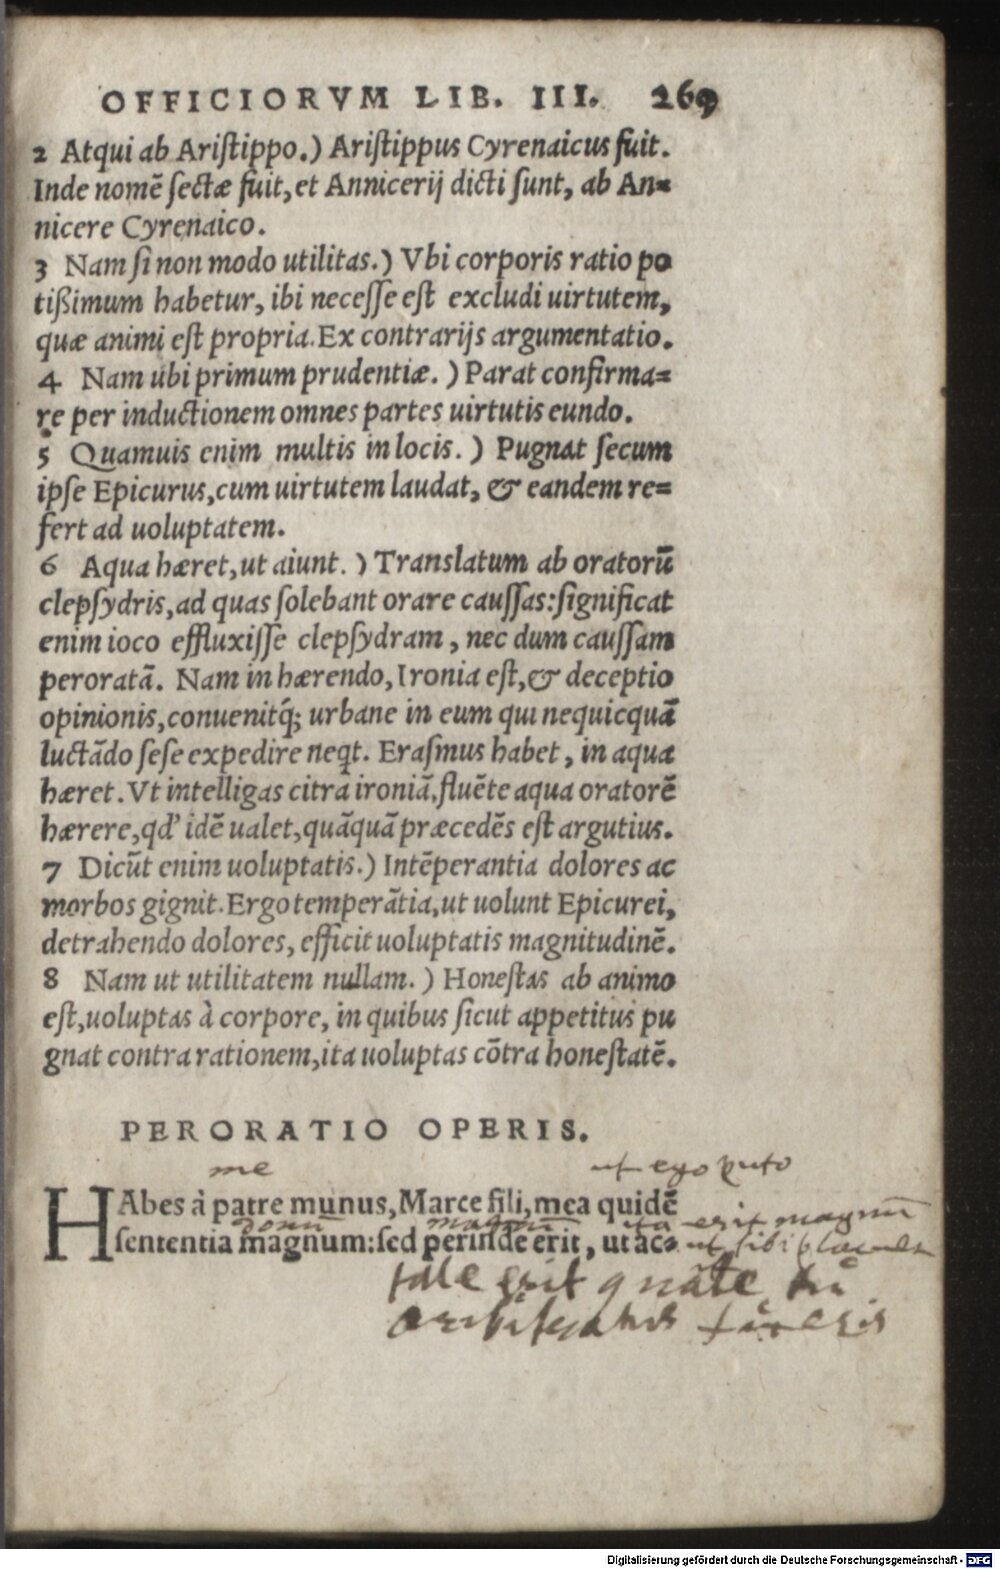 OFFICIORVM LIB. III. 269
2 Atqui ab Aristippo.) Aristippus Cyrenaicus fuit.
Inde nomē sectæ fuit, et Annicerij dicti sunt, ab An=
nicere Cyrenaico.
3 Nam si non modo utilitas.) Vbi corporis ratio po
tißimum habetur, ibi necesse est excludi uirtutem,
quæ animi est propria. Ex contrarijs argumentatio.
4 Nam ubi primum prudentiæ.) Parat confirma=
re per inductionem omnes partes uirtutis eundo.
5 Quamuis enim multis in locis.) Pugnat secum
ipse Epicurus, cum uirtutem laudat, & eandem re=
fert ad uoluptatem.
6 Aqua hæret, ut aiunt.) Translatum ab oratorū
clepsydris, ad quas solebant orare caussas: significat
enim ioco effluxisse clepsydram, nec dum caussam
peroratā. Nam in hærendo, Ironia est, & deceptio
opinionis, conuenitq́; urbane in eum qui nequicquā
luctādo sese expedire neqt. Erasmus habet, in aqua
hæret. Vt intelligas citra ironiā, fluēte aqua oratorē
hærere, qd' idē ualet, quāquā præcedēs est argutius.
7 Dicūt enim uoluptatis.) Intēperantia dolores ac
morbos gignit. Ergo temperātia, ut uolunt Epicurei,
detrahendo dolores, efficit uoluptatis magnitudinē.
8 Nam ut utilitatem nullam.) Honestas ab animo
est, uoluptas à corpore, in quibus sicut appetitus pu
gnat contra rationem, ita uoluptas cōtra honestatē.
PERORATIO OPERIS.
me ut ego puto
HAbes à patre munus, Marce fili, mea quidē
donū magnū ita erit magnū
sententia magnum: sed perinde erit, ut ac= ut tibi
tale erit
Digitalisierung gefördert durch die Deutsche Forschungsgemeinschaft - DFG